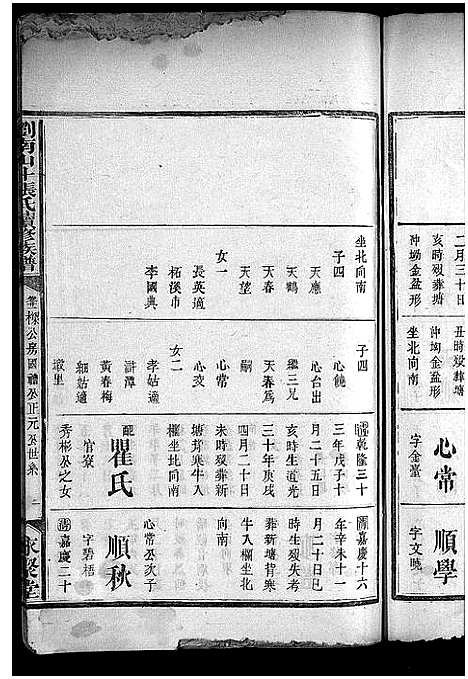 二月三十日
亥時歿葬塘
沖坳金盆形
坐北向南
子四
天應
天鶴
天春
天望
女一
長英適
柘溪市
李國典
丑時歿葬塘
沖坳金盆形
坐北向南
子四
心饒
心台出
繼三兄
天春爲
嗣
心常
心交
女二
孝姑適
滸潭
黃春梅
細姑適
叢里
心常
字金臺
乾隆三十
三年戊子十
月二十五日
亥時生道光
三十年庚戌
四月二十日
未時歿葬新
塘背寒牛入
欄坐北向南
配
瞿氏
官寮
秀彬公之女
順學
字文曉
嘉慶十六
年辛未十一
月二十日巳
時生歿失考
葬新塘背寒
牛入欄坐北
向南
心常公次子
順秋
字碧梧
嘉慶二十
張氏續修族譜
公房國禮公正元公世系
二
永愛堂